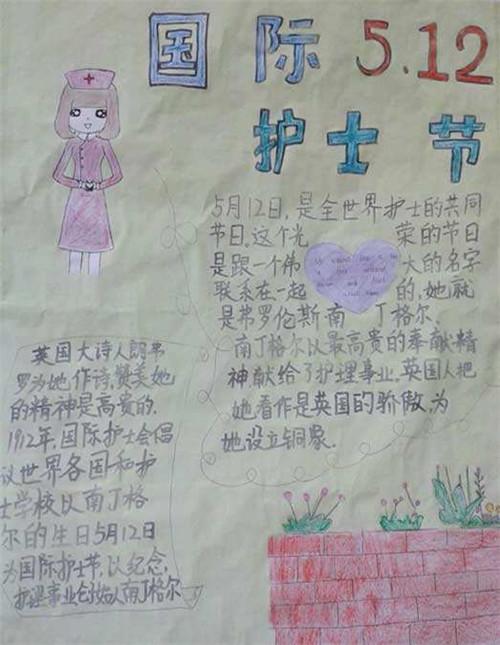 国际 5.12
护士节
5月12日,是全世界护士的共同
节日,这个光荣的节日
是跟一个伟大的名字
联系在一起的,她就
是弗罗伦斯南丁格尔.
南丁格尔以最高贵的奉献精
神献给了护理事业,英国人把
她看作是英国的骄傲,为
她设立铜象.
英国大诗人朗弗
罗为她作诗,赞美她
的精神是高贵的.
1912年,国际护士会倡
议世界各国和护
士学校以南丁格
尔的生日5月12日
为国际护士节,以纪念,
护理事业创始人南丁格尔